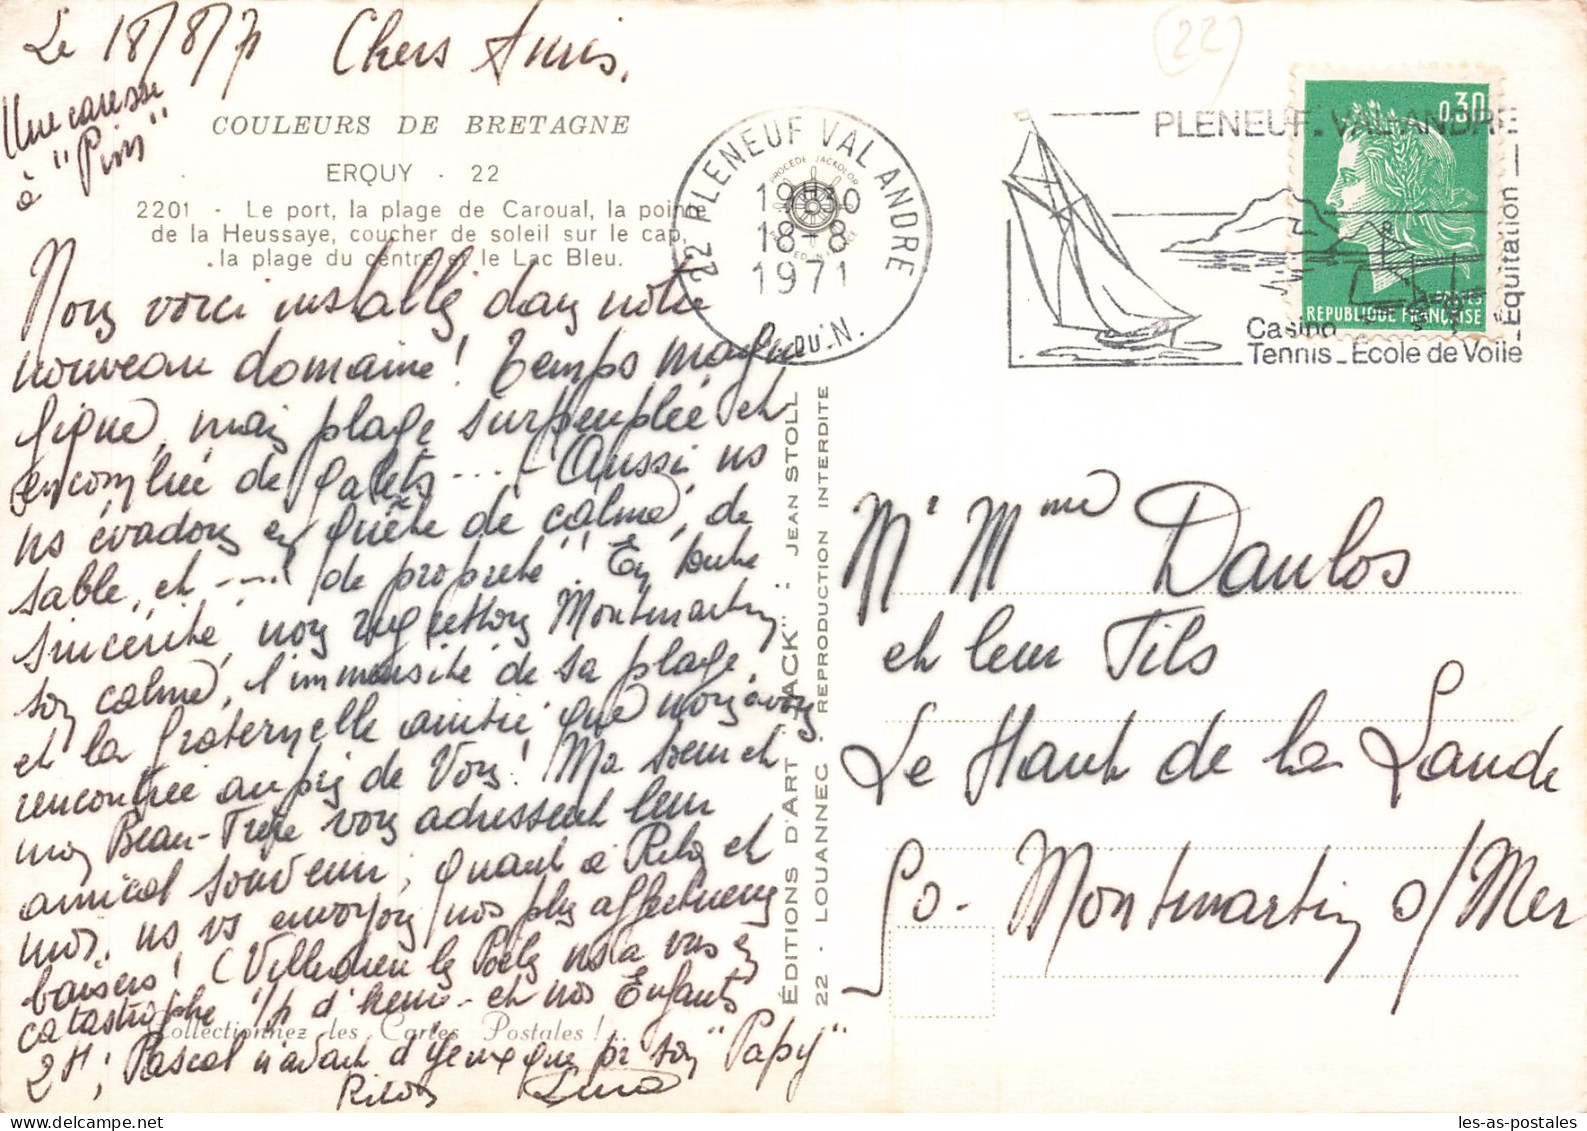 Le 18/8/71 Chers Amis,
Une caresse
à "Pim"
(22)
COULEURS DE BRETAGNE
ERQUY - 22
2201 - Le port, la plage de Caroual, la pointe
de la Heussaye, coucher de soleil sur le cap,
la plage du centre et le Lac Bleu.
Nous voici installés dans notre
nouveau domaine! Temps magni
fique, mais plage surpeuplée et
encombrée de galets .... - Aussi ns
ns évadons en quête de calme, de
sable, et .... "de propreté". En toute
sincérité, nous regrettons Montmartin
son calme, l'immensité de sa plage,
et la fraternelle amitié que nous avons
rencontrée auprès de Vous! Ma soeur et
mon Beau-Frère vous adressent leur
amical souvenir; quant à et
moi, ns vs envoyons nos plus affectueux
baisers! (Villedieu les Poêles ns a vus en
catastrophe 1/2 d'heure - et nos Enfants
2H; Pascal n'avait d'yeux que pr son "Papy"
Collectionnez les Cartes Postales !...
ÉDITIONS D'ART "JACK" : JEAN STOLL
22 - LOUANNEC - REPRODUCTION INTERDITE
22 PLENEUF VAL ANDRE
19H30
18-8
1971
DU N.
PROCEDE JACKOLOR
PLENEUF-VAL-ANDRE
Casino
Tennis - Ecole de Voile - Equitation
0,30
REPUBLIQUE FRANÇAISE
POSTES
Mr Mme Daulos
et leur Fils
Le Haut de la Lande
50 - Montmartin s/Mer